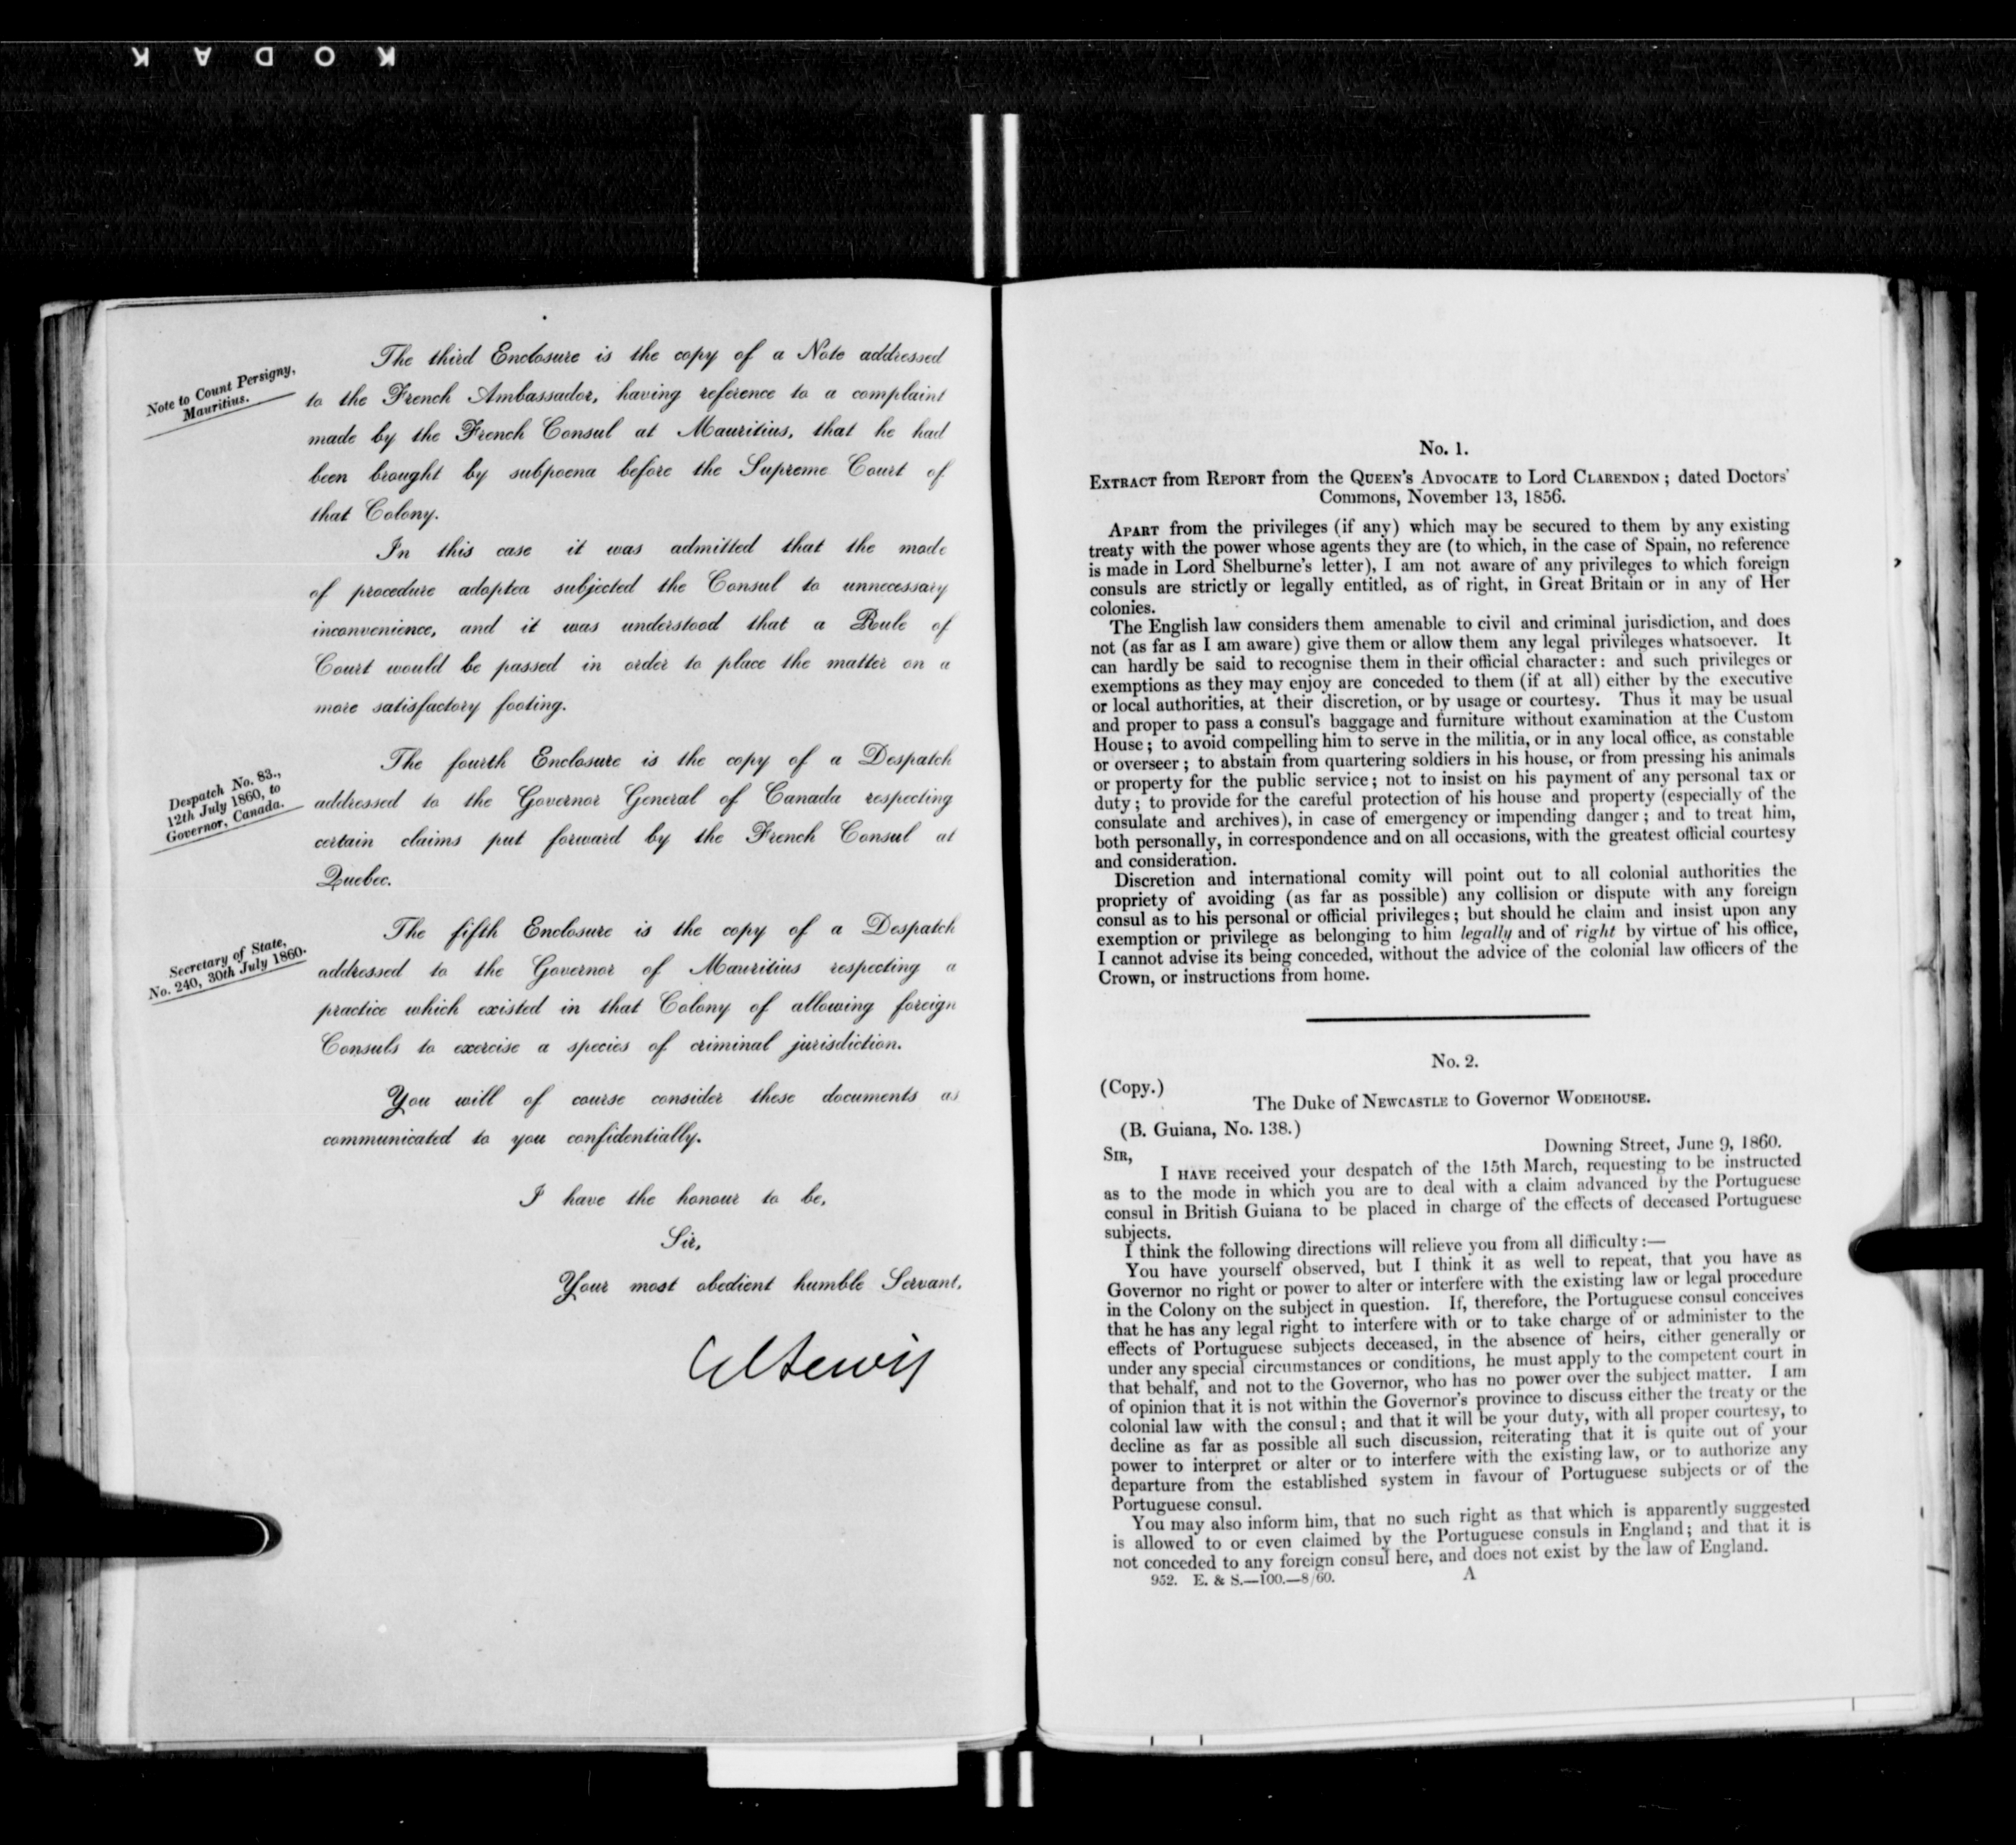 KODAK
Note to Count Persigny,
Mauritius.
The third Enclosure is the copy of a Note addressed
to the French Ambassador, having reference to a complaint
made by the French Consul at Mauritius, that he had
been brought by subpoena before the Supreme Court of
that Colony.
In this case it was admitted that the mode
of procedure adopted subjected the Consul to unnecessary
inconvenience, and it was understood that a Rule of
Court would be passed in order to place the matter on a
more satisfactory footing.
Despatch No. 83.,
12th July 1860, to
Governor, Canada.
The fourth Enclosure is the copy of a Despatch
addressed to the Governor General of Canada respecting
certain claims put forward by the French Consul at
Quebec.
Secretary of State,
No. 240, 30th July 1860.
The fifth Enclosure is the copy of a Despatch
addressed to the Governor of Mauritius respecting a
practice which existed in that Colony of allowing foreign
Consuls to exercise a species of criminal jurisdiction.
You will of course consider these documents as
communicated to you confidentially.
I have the honour to be,
Sir,
Your most obedient humble Servant,
GCLewis
No. 1.
EXTRACT from REPORT from the QUEEN'S ADVOCATE to Lord CLARENDON; dated Doctors'
Commons, November 13, 1856.
APART from the privileges (if any) which may be secured to them by any existing
treaty with the power whose agents they are (to which, in the case of Spain, no reference
is made in Lord Shelburne's letter), I am not aware of any privileges to which foreign
consuls are strictly or legally entitled, as of right, in Great Britain or in any of Her
colonies.
The English law considers them amenable to civil and criminal jurisdiction, and does
not (as far as I am aware) give them or allow them any legal privileges whatsoever. It
can hardly be said to recognise them in their official character: and such privileges or
exemptions as they may enjoy are conceded to them (if at all) either by the executive
or local authorities, at their discretion, or by usage or courtesy. Thus it may be usual
and proper to pass a consul's baggage and furniture without examination at the Custom
House; to avoid compelling him to serve in the militia, or in any local office, as constable
or overseer; to abstain from quartering soldiers in his house, or from pressing his animals
or property for the public service; not to insist on his payment of any personal tax or
duty; to provide for the careful protection of his house and property (especially of the
consulate and archives), in case of emergency or impending danger; and to treat him,
both personally, in correspondence and on all occasions, with the greatest official courtesy
and consideration.
Discretion and international comity will point out to all colonial authorities the
propriety of avoiding (as far as possible) any collision or dispute with any foreign
consul as to his personal or official privileges; but should he claim and insist upon any
exemption or privilege as belonging to him legally and of right by virtue of his office,
I cannot advise its being conceded, without the advice of the colonial law officers of the
Crown, or instructions from home.
No. 2.
(Copy.)
The Duke of NEWCASTLE to Governor WODEHOUSE.
(B. Guiana, No. 138.)
Downing Street, June 9, 1860.
SIR,
I HAVE received your despatch of the 15th March, requesting to be instructed
as to the mode in which you are to deal with a claim advanced by the Portuguese
consul in British Guiana to be placed in charge of the effects of deceased Portuguese
subjects.
I think the following directions will relieve you from all difficulty:—
You have yourself observed, but I think it as well to repeat, that you have as
Governor no right or power to alter or interfere with the existing law or legal procedure
in the Colony on the subject in question. If, therefore, the Portuguese consul conceives
that he has any legal right to interfere with or to take charge of or administer to the
effects of Portuguese subjects deceased, in the absence of heirs, either generally or
under any special circumstances or conditions, he must apply to the competent court in
that behalf, and not to the Governor, who has no power over the subject matter. I am
of opinion that it is not within the Governor's province to discuss either the treaty or the
colonial law with the consul; and that it will be your duty, with all proper courtesy, to
decline as far as possible all such discussion, reiterating that it is quite out of your
power to interpret or alter or to interfere with the existing law, or to authorize any
departure from the established system in favour of Portuguese subjects or of the
Portuguese consul.
You may also inform him, that no such right as that which is apparently suggested
is allowed to or even claimed by the Portuguese consuls in England; and that it is
not conceded to any foreign consul here, and does not exist by the law of England.
952. E. & S.—100.—8/60. A